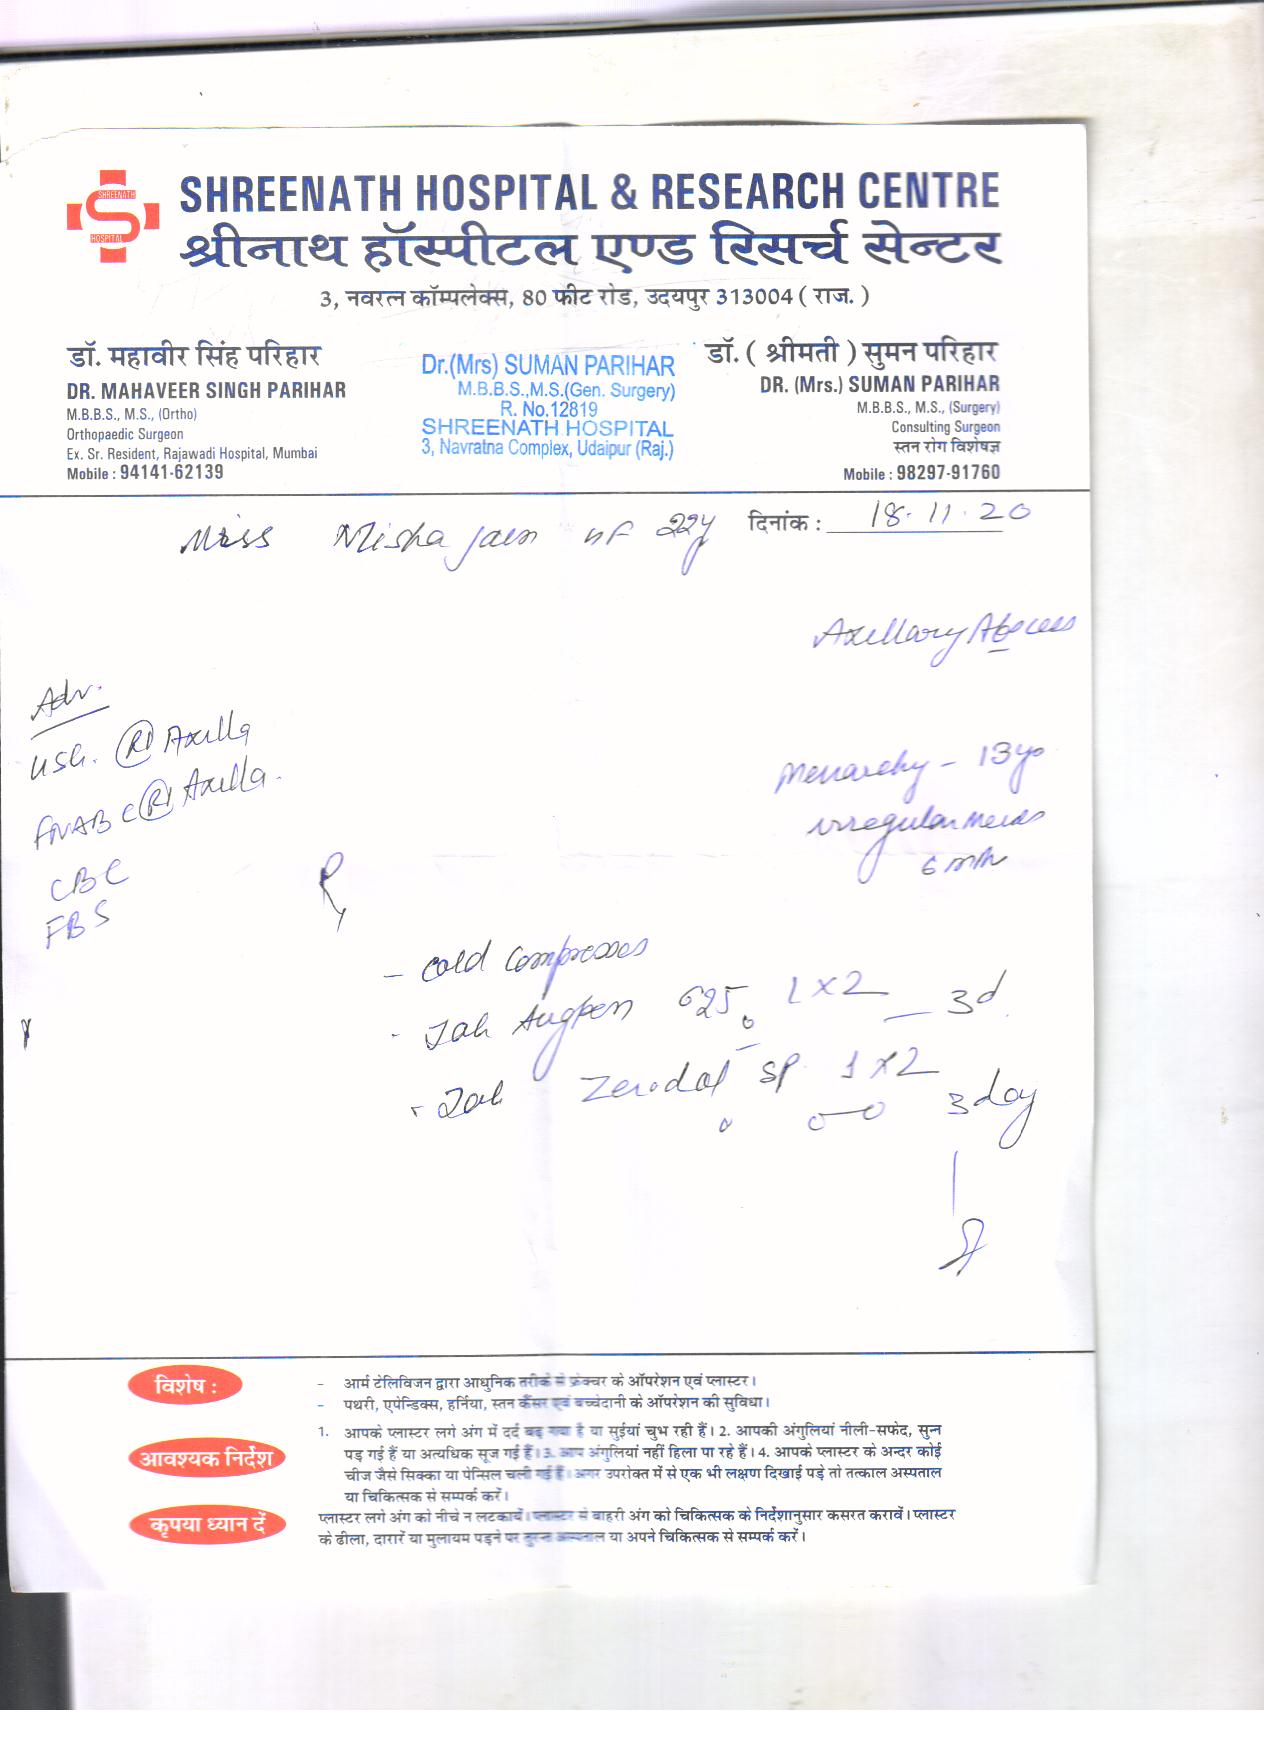 SHREENATH
HOSPITAL
SHREENATH HOSPITAL & RESEARCH CENTRE
श्रीनाथ हॉस्पीटल एण्ड रिसर्च सेन्टर
3, नवरत्न कॉम्पलेक्स, 80 फीट रोड, उदयपुर 313004 ( राज. )
डॉ. महावीर सिंह परिहार
DR. MAHAVEER SINGH PARIHAR
M.B.B.S., M.S., (Ortho)
Orthopaedic Surgeon
Ex. Sr. Resident, Rajawadi Hospital, Mumbai
Mobile : 94141-62139
Dr.(Mrs) SUMAN PARIHAR
M.B.B.S.,M.S.(Gen. Surgery)
R. No.12819
SHREENATH HOSPITAL
3, Navratna Complex, Udaipur (Raj.)
डॉ. ( श्रीमती ) सुमन परिहार
DR. (Mrs.) SUMAN PARIHAR
M.B.B.S., M.S., (Surgery)
Consulting Surgeon
स्तन रोग विशेषज्ञ
Mobile : 98297-91760
Miss Misha Jain 22y
दिनांक : 18.11.20
Axillary Abscess
Adv.
USG. @ Rt Axilla
FNAB C @ Rt Axilla.
CBC
FBS
Menarchy - 13 yo
irregular Mens
6 mth
Rx
- Cold Compresses
- Tab Augpen 625 1x2 — 3d
- Tab Zerodol SP 1x2 3 day
विशेष :
- आर्म टेलिविजन द्वारा आधुनिक तरीके से फ्रेक्चर के ऑपरेशन एवं प्लास्टर।
- पथरी, एपेन्डिक्स, हर्निया, स्तन कैंसर एवं बच्चेदानी के ऑपरेशन की सुविधा।
आवश्यक निर्देश
1. आपके प्लास्टर लगे अंग में दर्द बढ़ गया है या सुईयां चुभ रही हैं। 2. आपकी अंगुलियां नीली-सफेद, सुन्न
पड़ गई हैं या अत्यधिक सूज गई हैं। 3. आप अंगुलियां नहीं हिला पा रहे हैं। 4. आपके प्लास्टर के अन्दर कोई
चीज जैसे सिक्का या पेन्सिल चली गई हैं। अगर उपरोक्त में से एक भी लक्षण दिखाई पड़े तो तत्काल अस्पताल
या चिकित्सक से सम्पर्क करें।
कृपया ध्यान दें
प्लास्टर लगे अंग को नीचे न लटकायें। प्लास्टर से बाहरी अंग को चिकित्सक के निर्देशानुसार कसरत करावें। प्लास्टर
के ढीला, दारारें या मुलायम पड़ने पर तुरन्त अस्पताल या अपने चिकित्सक से सम्पर्क करें।